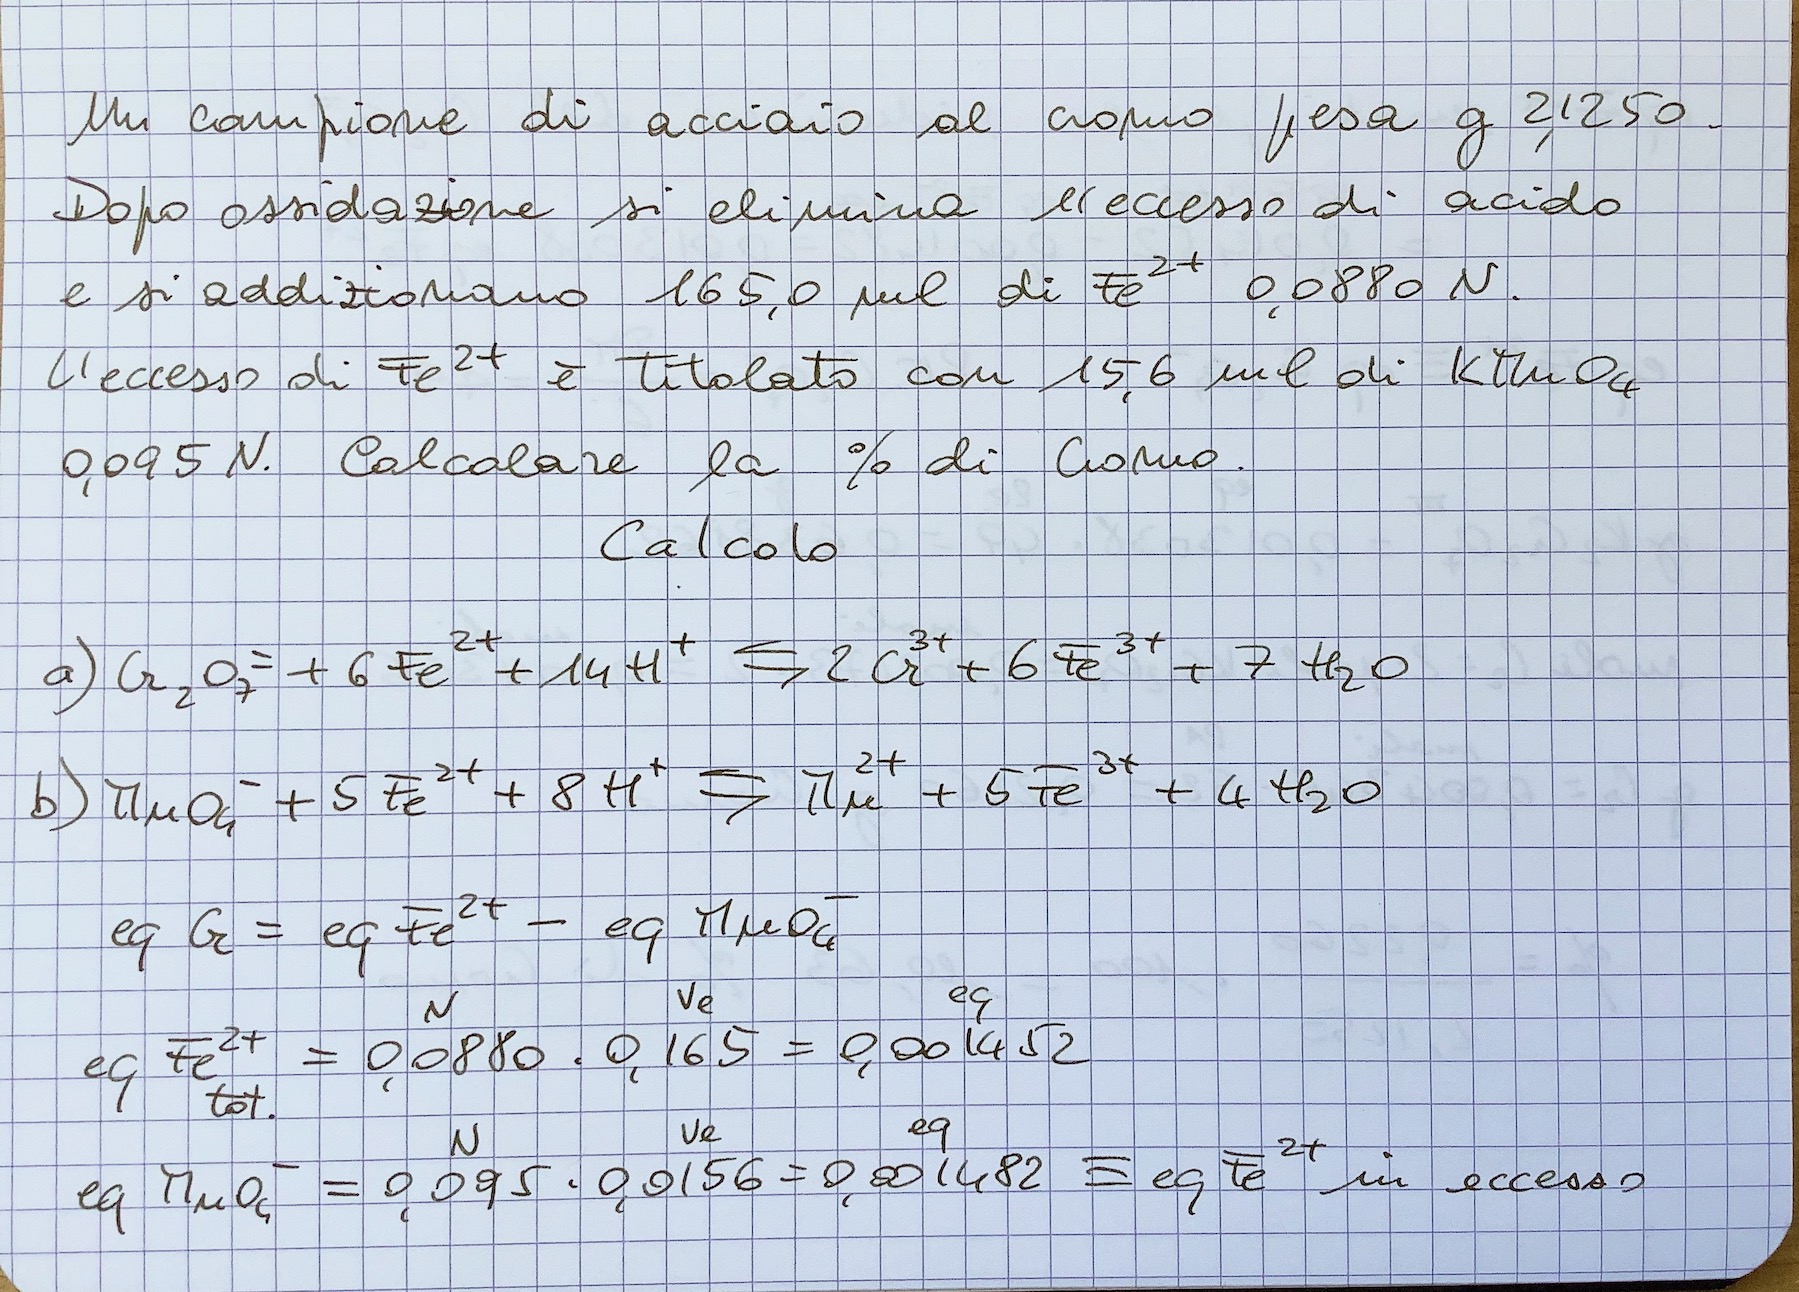 Un campione di acciaio al cromo pesa g 2,1250.
Dopo ossidazione si elimina l'eccesso di acido
e si addizionano 165,0 ml di Fe²⁺ 0,0880 N.
L'eccesso di Fe²⁺ è titolato con 15,6 ml di KMnO₄
0,095 N. Calcolare la % di Cromo.
Calcolo
a) Cr₂O₇⁼ + 6 Fe²⁺ + 14 H⁺ ⇆ 2 Cr³⁺ + 6 Fe³⁺ + 7 H₂O
b) MnO₄⁻ + 5 Fe²⁺ + 8 H⁺ ⇆ Mn²⁺ + 5 Fe³⁺ + 4 H₂O
eq Cr = eq Fe²⁺ − eq MnO₄⁻
N Ve eq
eq Fe²⁺ = 0,0880 · 0,165 = 0,001452
tot.
N Ve eq
eq MnO₄⁻ = 0,095 · 0,0156 = 0,001482 ≡ eq Fe²⁺ in eccesso